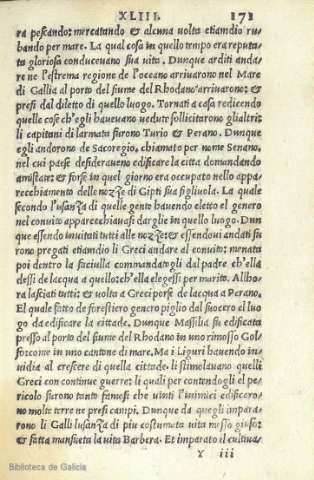 XLIII. 171
ra pescando: mercatando & alcuna volta etiamdio ru-
bando per mare. La qual cosa in quello tempo era reputa-
ta gloriosa conduceuano sua vita. Dunque arditi anda-
re ne l'estrema regione de l'oceano arriuarono nel Mare
di Gallia al porto del fiume del Rhodano arriuarono: &
presi dal diletto di quello luogo. Tornati a casa redicendo
quelle cose ch'egli haueuano vedute sollicitarono gli altri:
li capitani di larmata furono Furio & Perano. Dunque
egli andorono de Sacoregio, chiamato per nome Senano,
nel cui paese desiderauono edificare la citta domandando
amistate: & forse in quel giorno era occupato nello appa-
recchiamento delle nozze di Gipti sua figliuola. La quale
secondo l'usanza di quelle genti hauendo eletto el genero
nel conuito apparecchiauasi darglie in quello luogo. Dun
que essendo inuitati tutti alle nozze: & essendoui andati fu
rono pregati etiamdio li Greci andare al conuito: menata
poi dentro la faciulla commandatogli dal padre ch'ella
dessi de lacqua a quello: ch'ella elegessi per marito. Allho-
ra lasciati tutti: & volto a Greci porse de lacqua a Perano.
El quale fatto de forestiero genero piglio dal suocero el luo
go da edificare la cittade. Dunque Massilia fu edificata
presso al porto del fiume del Rhodano in uno rimosso Gol-
fo: come in uno cantone di mare. Ma i Liguri hauendo in-
uidia al crescere di quella cittade. li stimolauano quelli
Greci con continue guerre: li quali per contendogli el pe-
ricolo furono tanto famosi che uinti l'inimici edificoro-
no molte terre ne presi campi. Dunque da quegli impara-
rono li Galli l'usanza di piu costumata vita mosso giuso:
& fatta mansueta la vita Barbera. Et imparato il cultiua-
Y iii
Biblioteca de Galicia